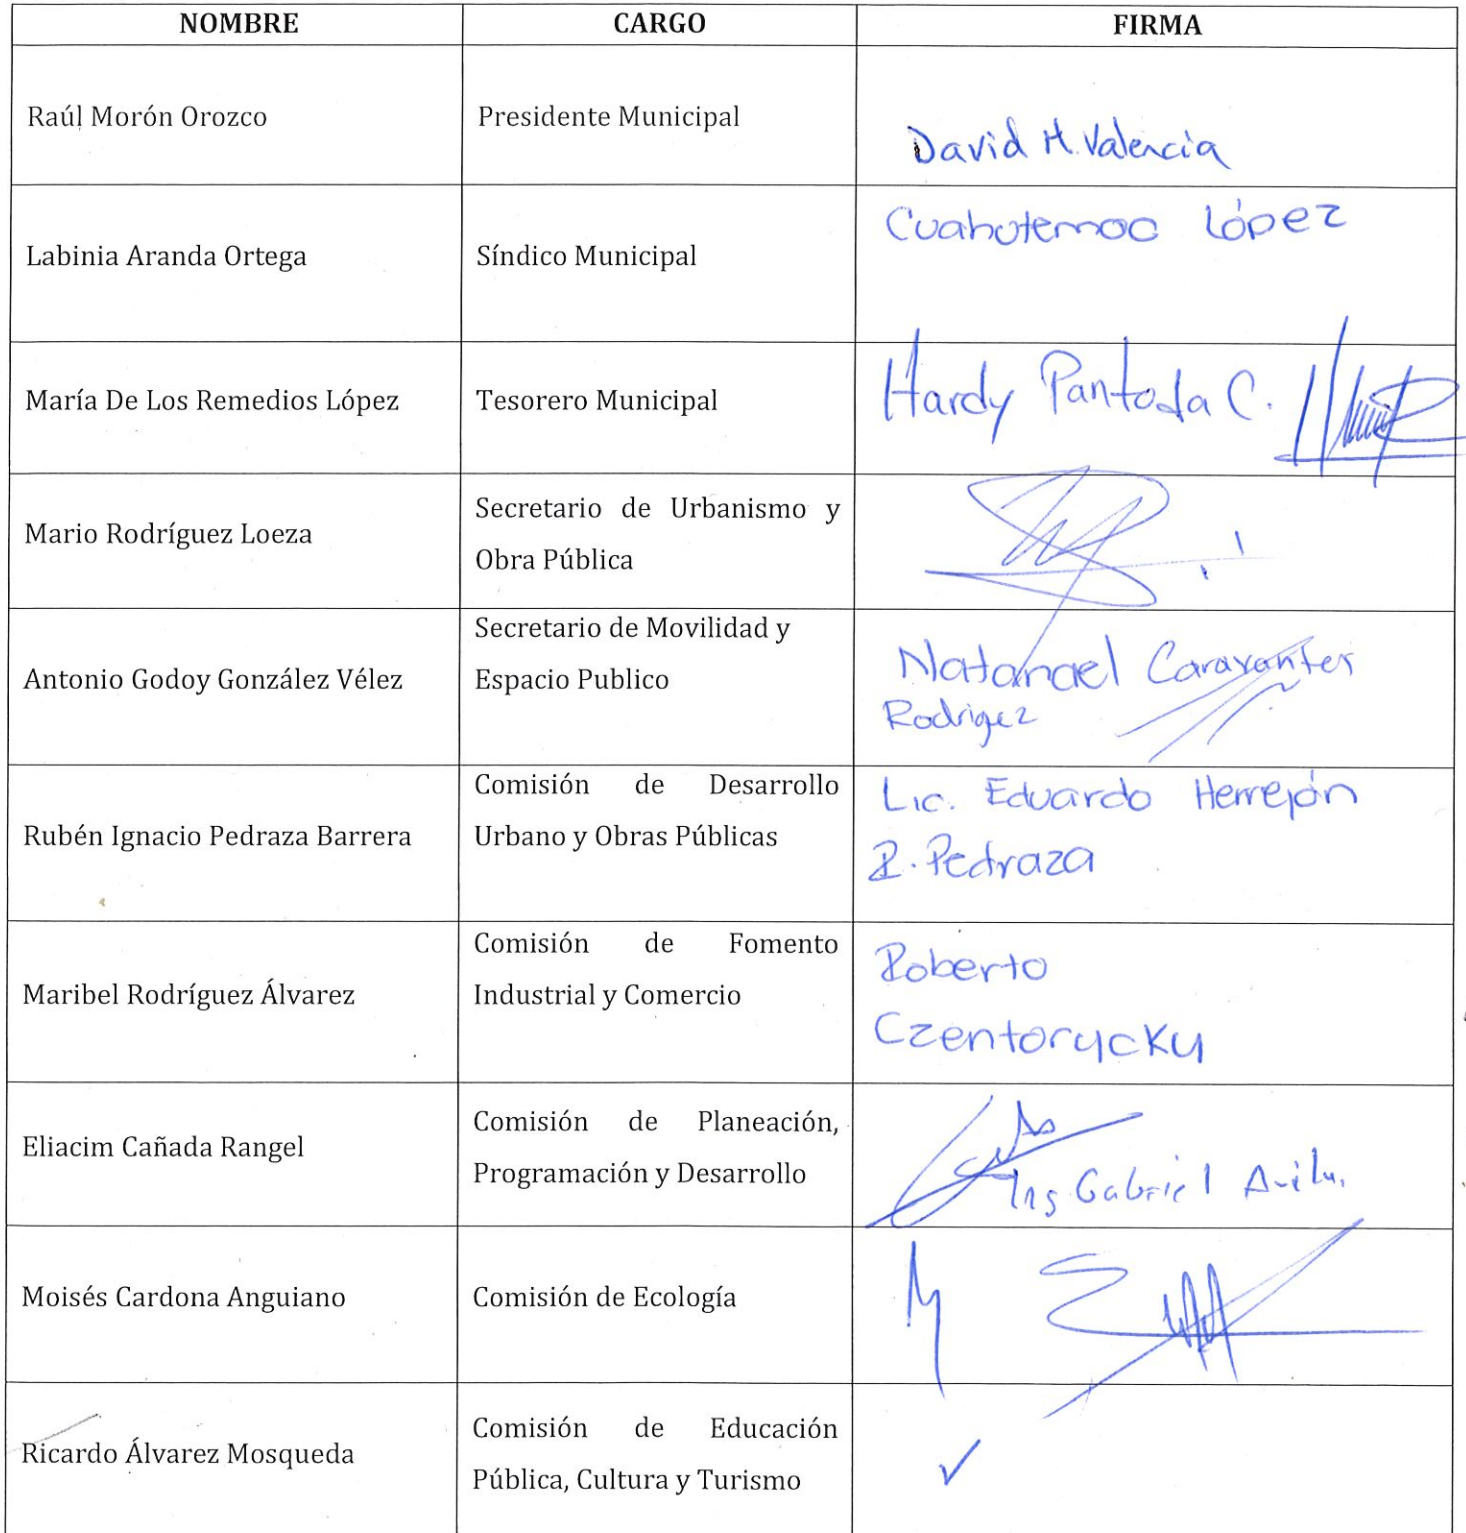 NOMBRE CARGO FIRMA
Raúl Morón Orozco Presidente Municipal David H. Valencia
Labinia Aranda Ortega Síndico Municipal Cuahutemoc López
María De Los Remedios López Tesorero Municipal Hardy Pantoja C.
Mario Rodríguez Loeza Secretario de Urbanismo y
Obra Pública
Antonio Godoy González Vélez Secretario de Movilidad y
Espacio Publico
Natanael Caravantes
Rodriguez
Rubén Ignacio Pedraza Barrera Comisión de Desarrollo
Urbano y Obras Públicas
Lic. Eduardo Herrejón
R. Pedraza
Maribel Rodríguez Álvarez Comisión de Fomento
Industrial y Comercio
Roberto
Czentorycky
Eliacim Cañada Rangel Comisión de Planeación,
Programación y Desarrollo
Ing Gabriel Avila.
Moisés Cardona Anguiano Comisión de Ecología
Ricardo Álvarez Mosqueda Comisión de Educación
Pública, Cultura y Turismo